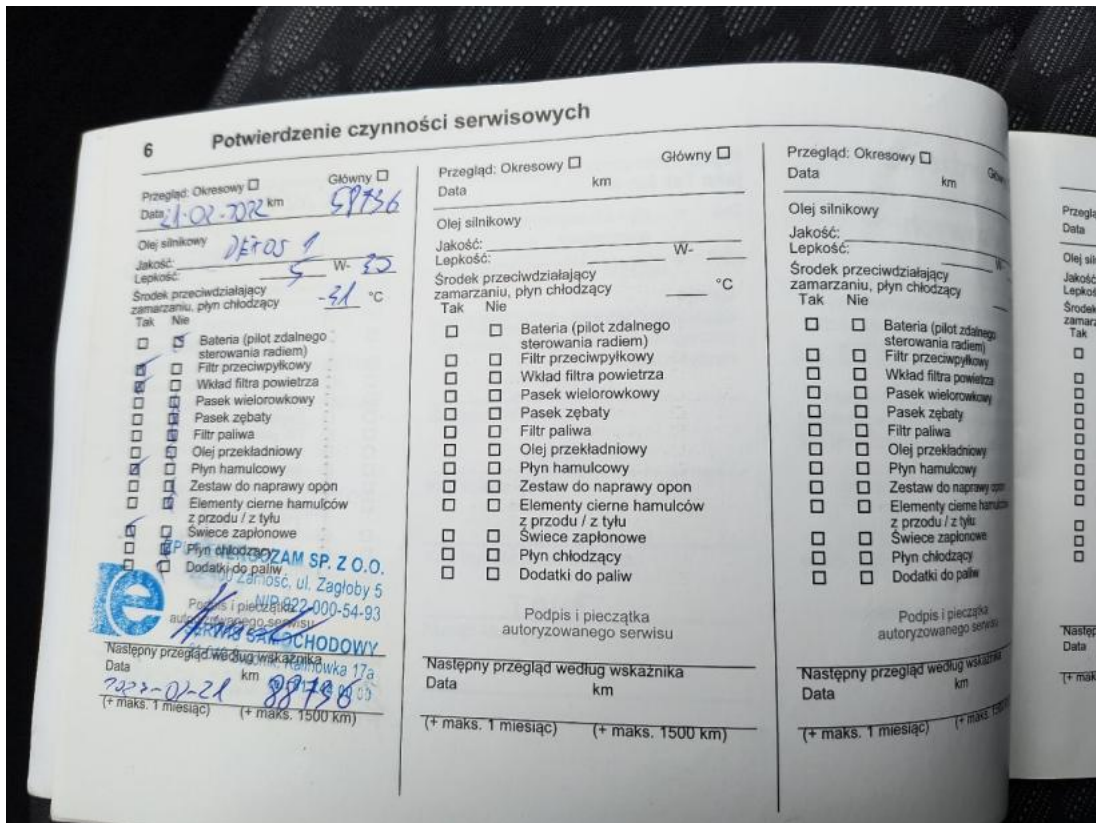 6 Potwierdzenie czynności serwisowych
Przegląd: Okresowy Główny
Data 21-02-2022 km 58736
Olej silnikowy
Jakość: DEXOS 1
Lepkość: 5 W- 30
Środek przeciwdziałający
zamarzaniu, płyn chłodzący -31 °C
Tak Nie
Bateria (pilot zdalnego
sterowania radiem)
Filtr przeciwpyłkowy
Wkład filtra powietrza
Pasek wielorowkowy
Pasek zębaty
Filtr paliwa
Olej przekładniowy
Płyn hamulcowy
Zestaw do naprawy opon
Elementy cierne hamulców
z przodu / z tyłu
Świece zapłonowe
Płyn chłodzący
Dodatki do paliw
ENERGOZAM SP. Z O.O.
Zamość, ul. Zagłoby 5
NIP 922-000-54-93
Podpis i pieczątka
autoryzowanego serwisu
SERWIS SAMOCHODOWY
Kalinówka 17a
Następny przegląd według wskaźnika
Data km
2023-02-21 88736
(+ maks. 1 miesiąc) (+ maks. 1500 km)
Przegląd: Okresowy Główny
Data km
Olej silnikowy
Jakość:
Lepkość: W-
Środek przeciwdziałający
zamarzaniu, płyn chłodzący °C
Tak Nie
Bateria (pilot zdalnego
sterowania radiem)
Filtr przeciwpyłkowy
Wkład filtra powietrza
Pasek wielorowkowy
Pasek zębaty
Filtr paliwa
Olej przekładniowy
Płyn hamulcowy
Zestaw do naprawy opon
Elementy cierne hamulców
z przodu / z tyłu
Świece zapłonowe
Płyn chłodzący
Dodatki do paliw
Podpis i pieczątka
autoryzowanego serwisu
Następny przegląd według wskaźnika
Data km
(+ maks. 1 miesiąc) (+ maks. 1500 km)
Przegląd: Okresowy
Data km
Olej silnikowy
Jakość:
Lepkość: W-
Środek przeciwdziałający
zamarzaniu, płyn chłodzący
Tak Nie
Bateria (pilot zdalnego
sterowania radiem)
Filtr przeciwpyłkowy
Wkład filtra powietrza
Pasek wielorowkowy
Pasek zębaty
Filtr paliwa
Olej przekładniowy
Płyn hamulcowy
Zestaw do naprawy opon
Elementy cierne hamulców
z przodu / z tyłu
Świece zapłonowe
Płyn chłodzący
Dodatki do paliw
Podpis i pieczątka
autoryzowanego serwisu
Następny przegląd według wskaźnika
Data km
(+ maks. 1 miesiąc) (+ maks. 1500
Data
Tak
Data